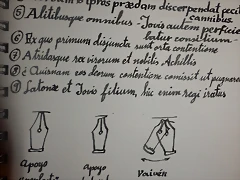 prædam discerpendat
⑤ Alitibusque omnibus - Jovis autem perficie
cannibus
batur consilium -
⑥ Ex quo primum disjuncti sunt orta contentione
⑦ Atridasque rex virorum et nobilis Achillis
⑧ è Quisnam eos deorum contentione comissit ut pugnare
⑨ Latonæ et Jovis filium, hic enim regi iratus
Apoyo
apoyo
Vaivén